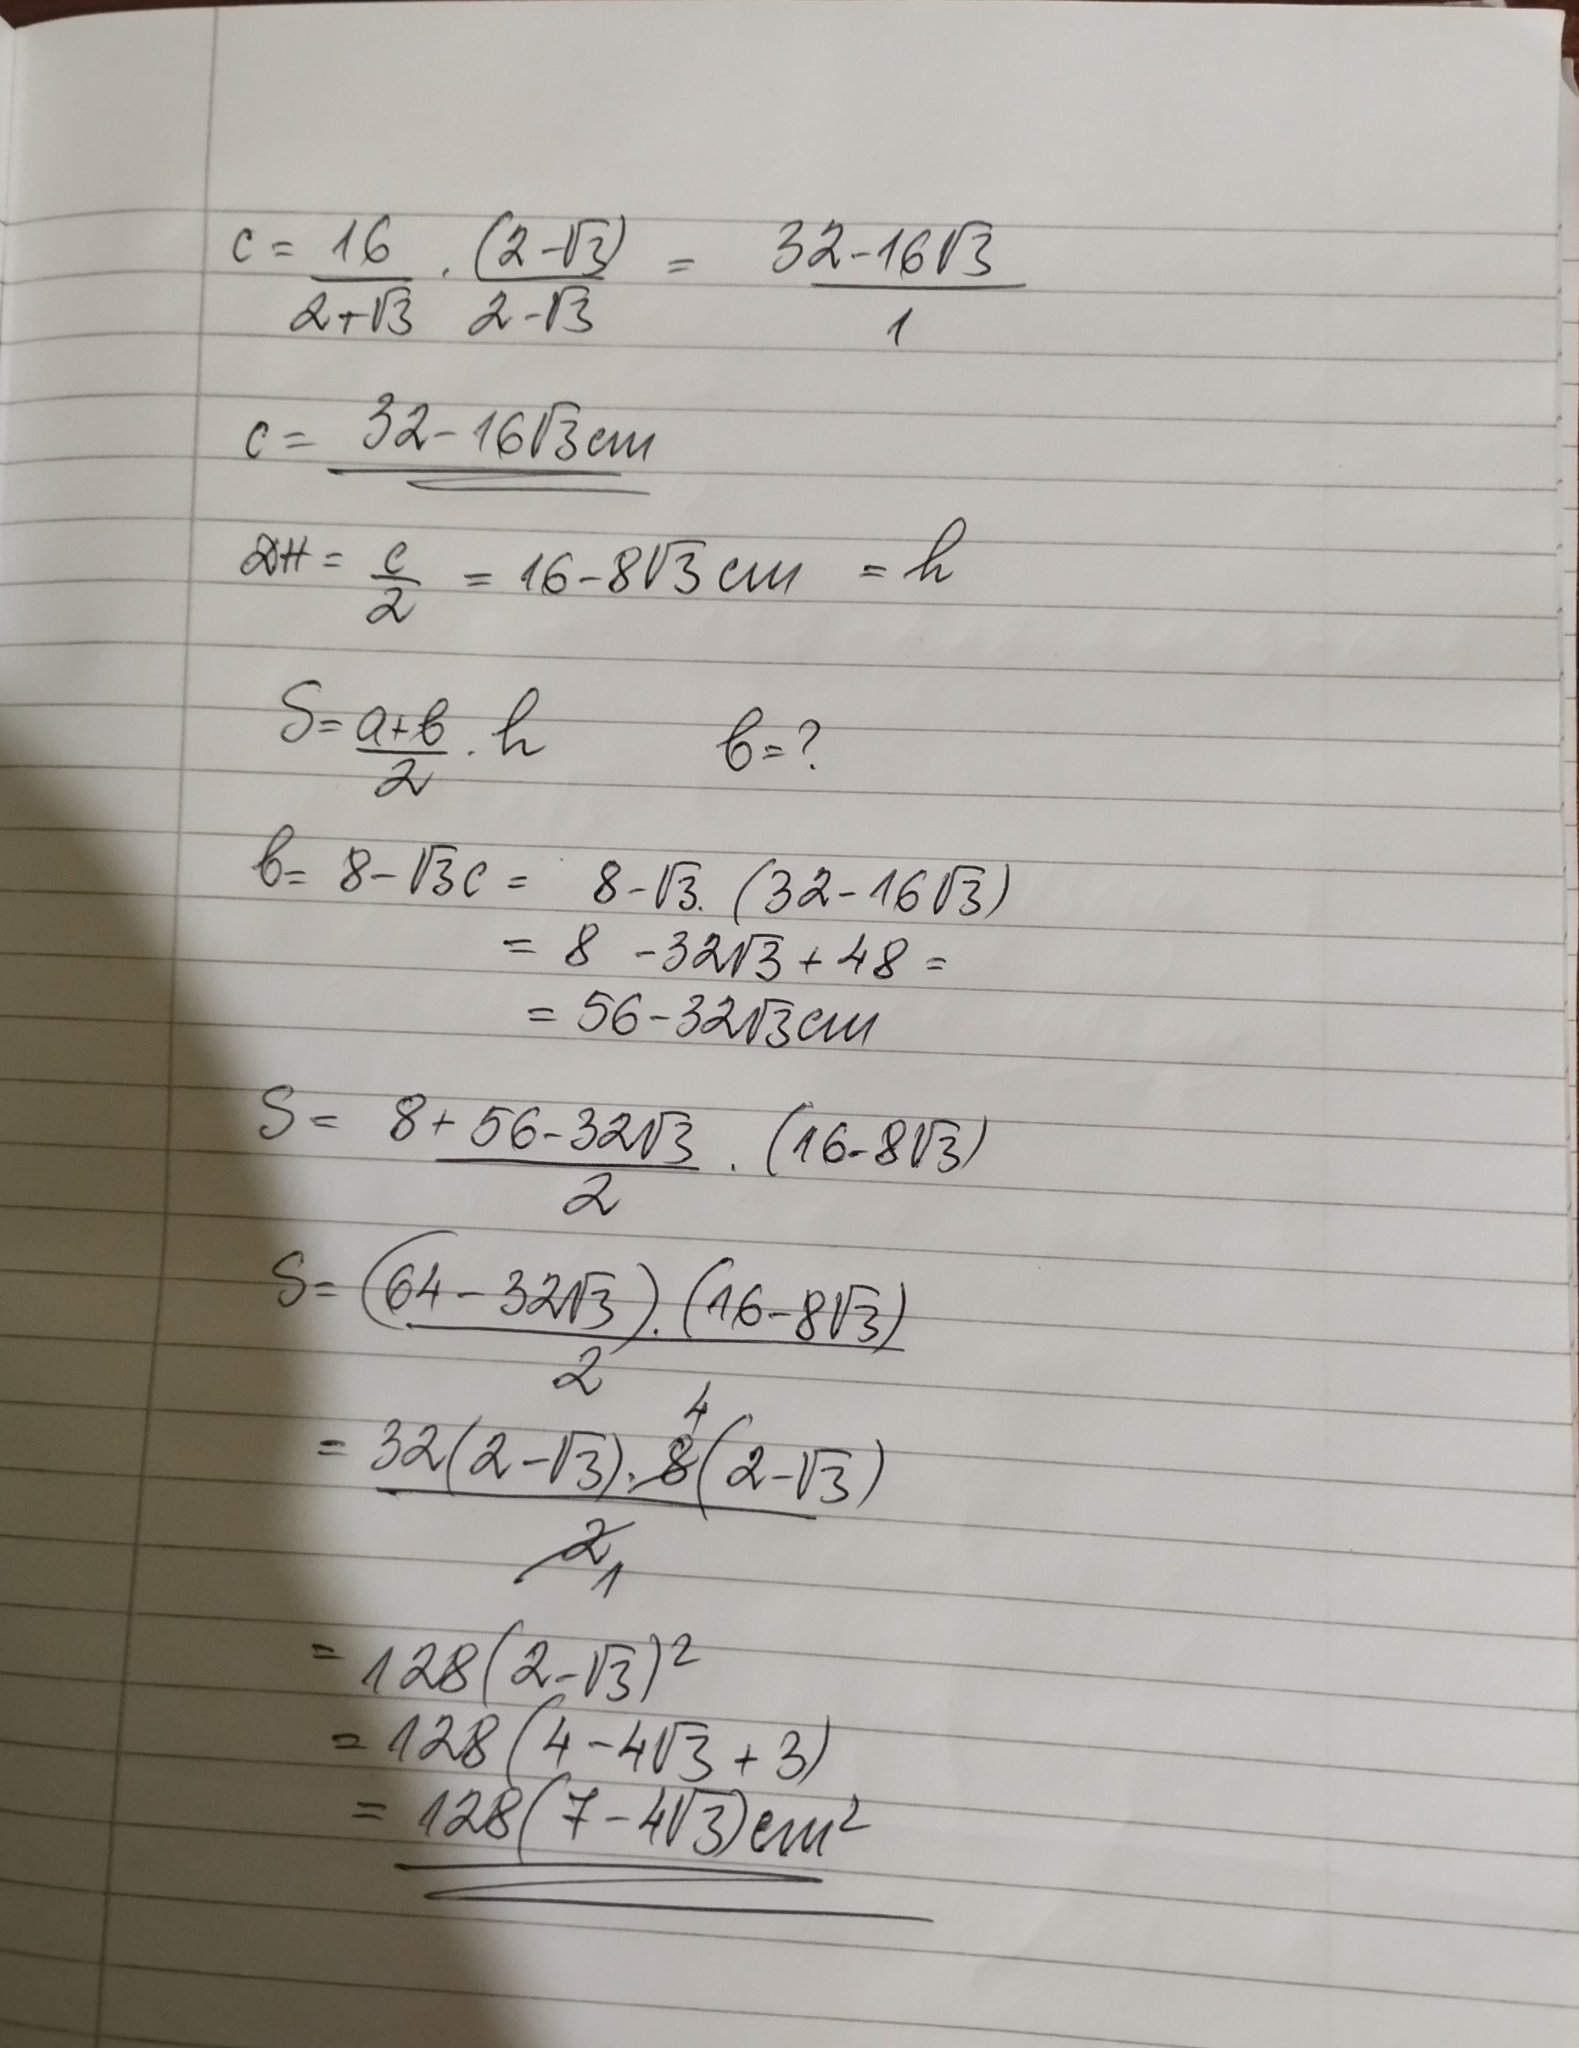 c = 16/(2+√3) · (2-√3)/(2-√3) = (32-16√3)/1
c = 32-16√3 cm
DH = c/2 = 16-8√3 cm = h
S = (a+b)/2 · h b = ?
b = 8-√3c = 8-√3. (32-16√3)
= 8 -32√3 + 48 =
= 56-32√3 cm
S = (8+56-32√3)/2 · (16-8√3)
S = (64-32√3) · (16-8√3)/2
4
= 32(2-√3) · 8(2-√3)/2 1
= 128(2-√3)²
= 128(4-4√3+3)
= 128(7-4√3) cm²